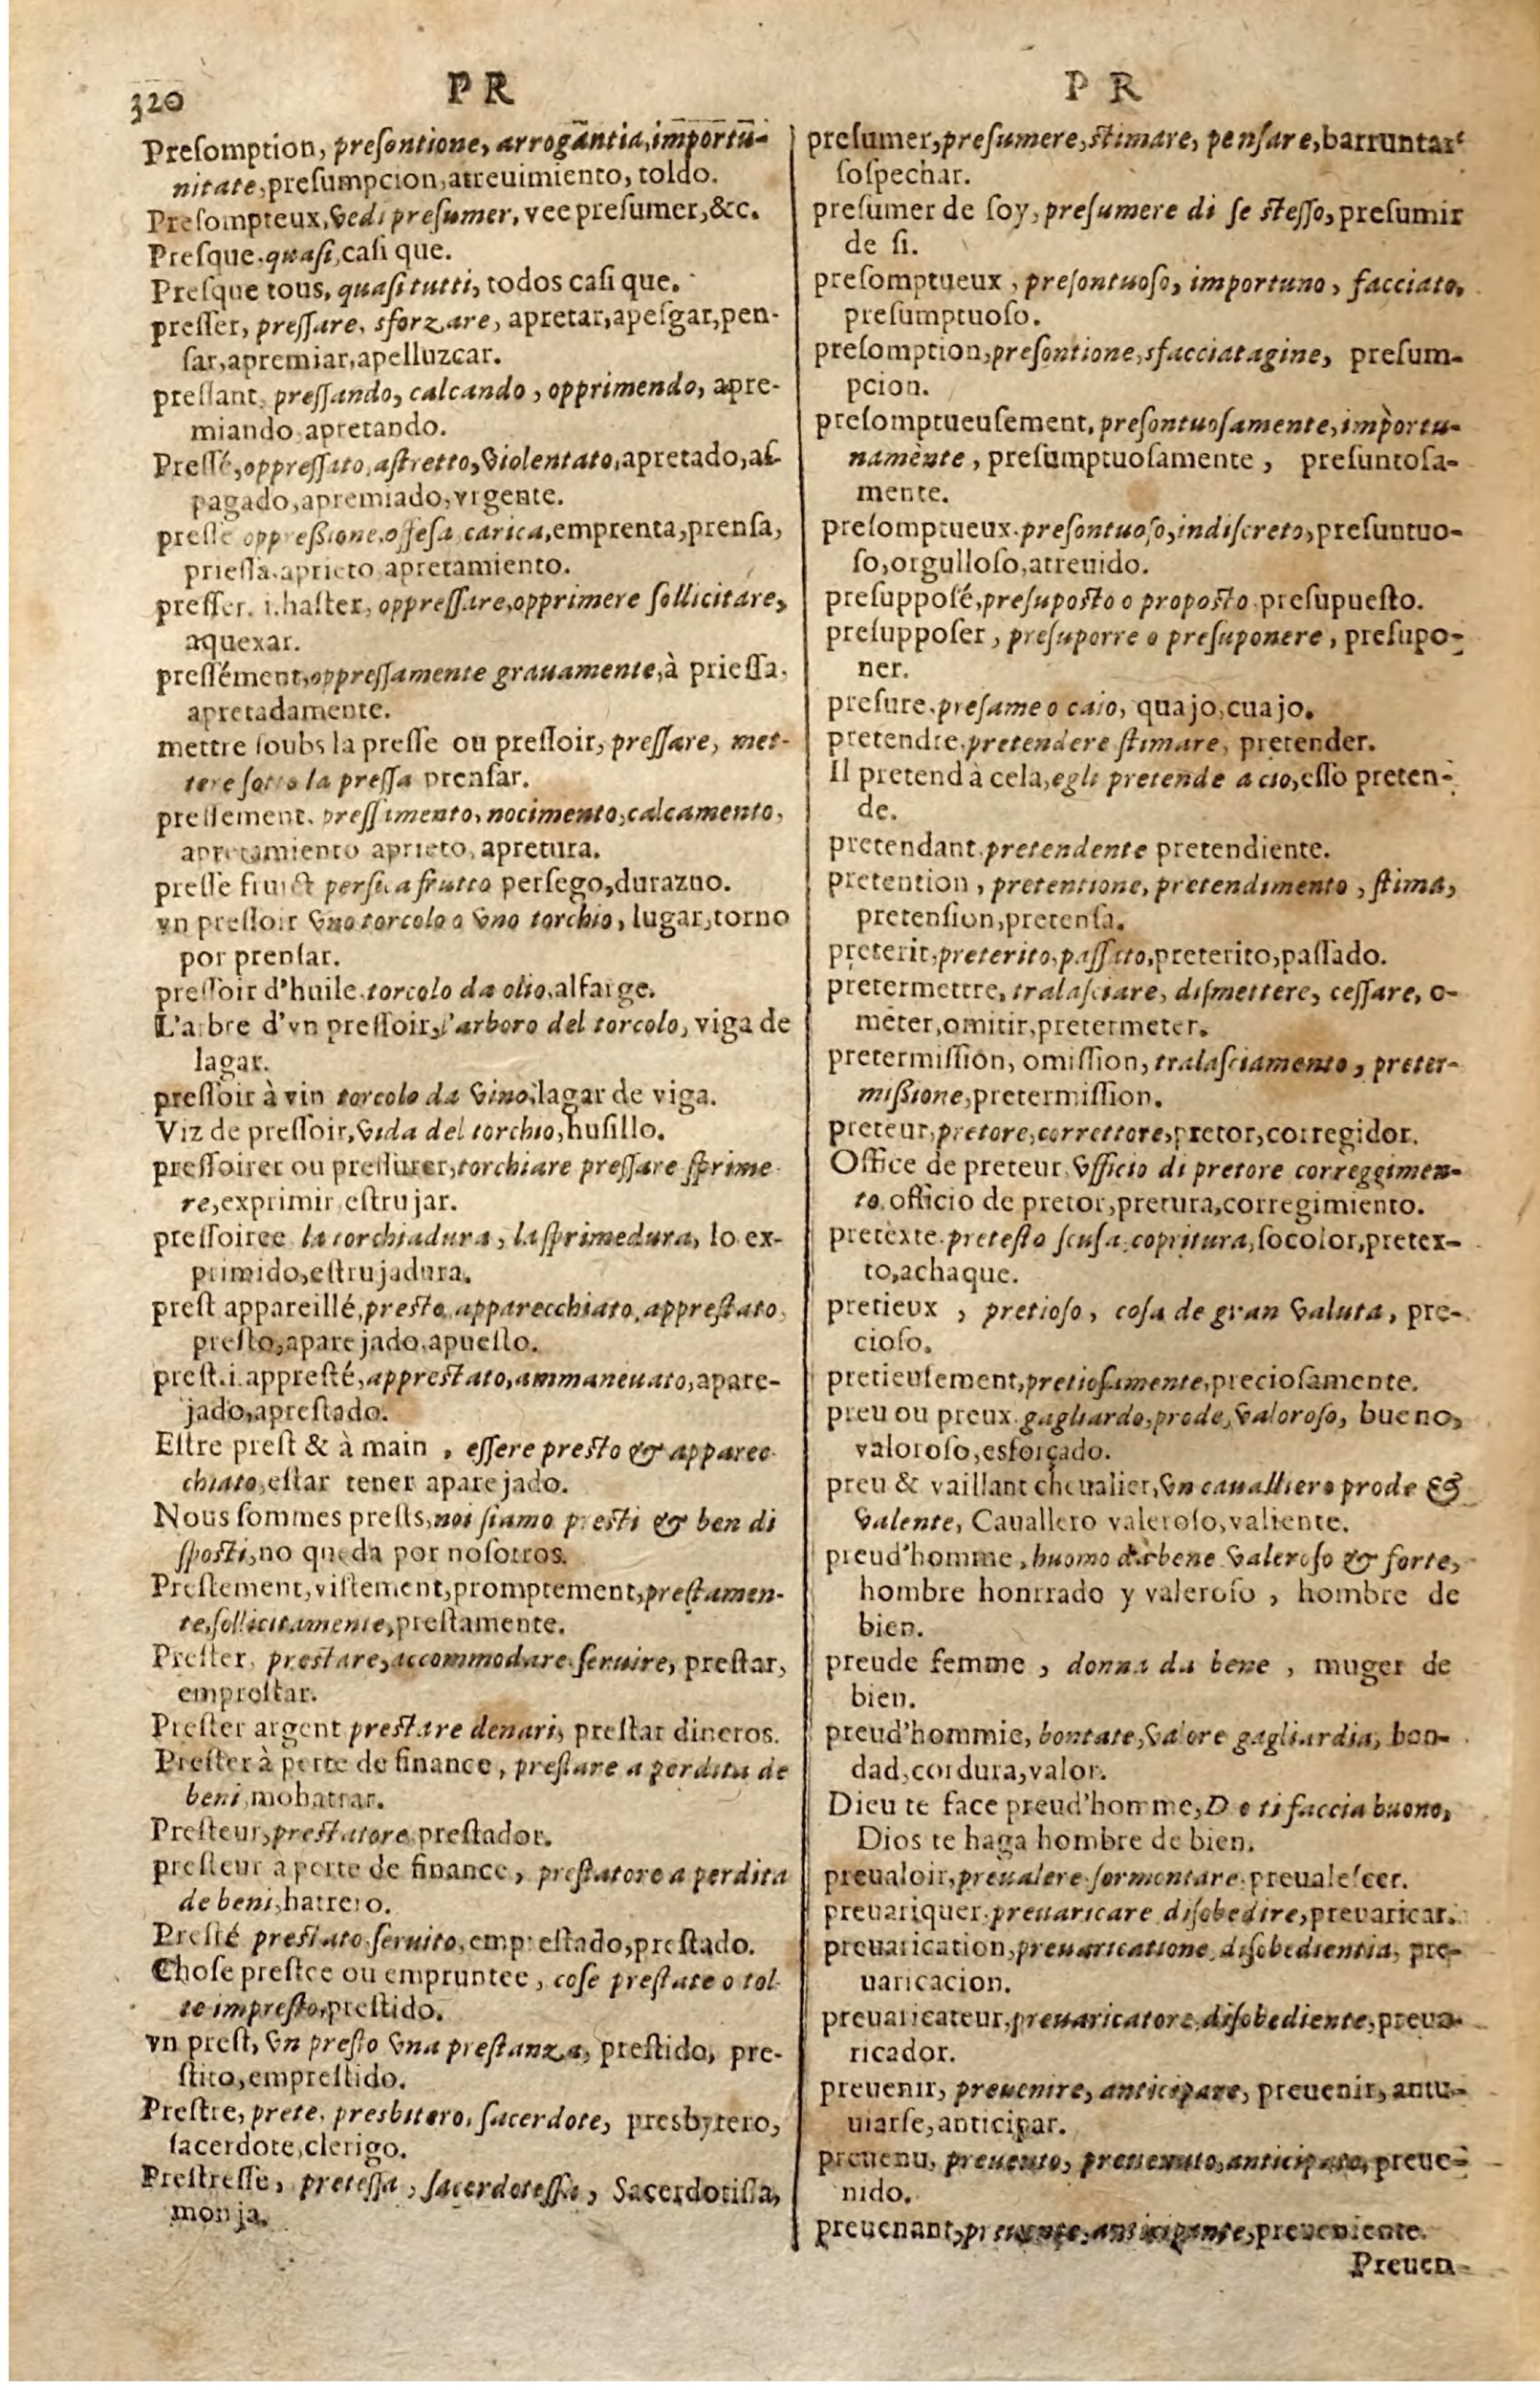 320
PR
PR
Preſomption, preſontione, arrogãntia, importu-
nitate, preſumpcion, atreuimiento, toldo.
Preſompteux, vedi preſumer, vee preſumer, &c.
Preſque. quaſi, caſi que.
Preſque tous, quaſi tutti, todos caſi que.
preſſer, preſſare, sforzare, apretar, apeſgar, pen-
ſar, apremiar, apelluzcar.
preſſant, preſſando, calcando, opprimendo, apre-
miando, apretando.
Preſſé, oppreſſato, aſtretto, violentato, apretado, aſ-
pagado, apremiado, vrgente.
preſſe oppreßione, offeſa carica, emprenta, prenſa,
prieſſa. aprieto apretamiento.
preſſer. i. haſter, oppreſſare, opprimere ſollicitare,
aquexar.
preſſément, oppreſſamente grauamente, à prieſſa,
apretadamente.
mettre ſoubs la preſſe ou preſſoir, preſſare, met-
tere ſotto la preſſa prenſar.
preſſement. preſſimento, nocimento, calcamento,
apretamiento aprieto, apretura.
preſſe fruict perſica frutto perſego, durazno.
vn preſſoir vno torcolo o vno torchio, lugar, torno
por prenſar.
preſſoir d'huile. torcolo da olio, alfarge.
L'arbre d'vn preſſoir, l'arboro del torcolo, viga de
lagar.
preſſoir à vin torcolo da vino, lagar de viga.
Viz de preſſoir, vida del torchio, huſillo.
preſſoirer ou preſſurer, torchiare preſſare ſprime
re, exprimir, eſtrujar.
preſſoiree la torchiadura, la ſprimedura, lo ex-
primido, eſtrujadura.
preſt appareillé, preſto, apparecchiato, appreſtato,
preſto, aparejado, apueſto.
preſt. i. appreſté, appreſtato, ammaneuato, apare-
jado, apreſtado.
Eſtre preſt & à main, eſſere preſto & apparec
chiato, eſtar tener aparejado.
Nous ſommes preſts, noi ſiamo preſti & ben di
ſpoſti, no queda por noſotros.
Preſtement, viſtement, promptement, preſtamen-
te, ſollicitamente, preſtamente.
Preſter, preſtare, accommodare ſeruire, preſtar,
empreſtar.
Preſter argent preſtare denari, preſtar dineros.
Preſter à perte de finance, preſtare a perdita de
beni, mohatrar.
Preſteur, preſtatore preſtador.
preſteur a perte de finance, preſtatore a perdita
de beni, hatrero.
Preſté preſtato ſeruito, empreſtado, preſtado.
Choſe preſtee ou empruntee, coſe preſtate o tol
te impreſto, preſtido.
vn preſt, vn preſto vna preſtanza, preſtido, pre-
ſtito, empreſtido.
Preſtre, prete, presbitero, ſacerdote, presbytero,
ſacerdote, clerigo.
Preſtreſſe, preteſſa, ſacerdoteſſa, Sacerdotiſſa,
monja.
preſumer, preſumere, ſtimare, penſare, barruntar
ſoſpechar.
preſumer de ſoy, preſumere di ſe ſteſſo, preſumir
de ſi.
preſomptueux, preſontuoſo, importuno, facciato,
preſumptuoſo.
preſomption, preſontione, sfacciatagine, preſum-
pcion.
preſomptueuſement, preſontuoſamente, importu-
namènte, preſumptuoſamente, preſuntoſa-
mente.
preſomptueux. preſontuoſo, indiſcreto, preſuntuo-
ſo, orgulloſo, atreuido.
preſuppoſé, preſupoſto o propoſto preſupueſto.
preſuppoſer, preſuporre o preſuponere, preſupo-
ner.
preſure. preſame o caio, quajo, cuajo.
pretendre. pretendere ſtimare, pretender.
Il pretend à cela, egli pretende a cio, eſſo preten-
de.
pretendant. pretendente pretendiente.
pretention, pretentione, pretendimento, ſtima,
pretenſion, pretenſa.
preterit, preterito, paſſato, preterito, paſſado.
pretermettre, tralaſciare, diſmettere, ceſſare, o-
meter, omitir, pretermeter.
pretermiſſion, omiſſion, tralaſciamento, preter-
mißione, pretermiſſion.
preteur, pretore, correttore, pretor, corregidor.
Office de preteur, vfficio di pretore correggimen-
to, officio de pretor, pretura, corregimiento.
pretexte. preteſto ſcuſa, copritura, ſocolor, pretex-
to, achaque.
pretieux, pretioſo, coſa de gran valuta, pre-
cioſo.
pretieuſement, pretioſamente, precioſamente.
preu ou preux. gagliardo, prode, valoroſo, bueno,
valoroſo, esforçado.
preu & vaillant cheualier, vn caualliero prode &
valente, Cauallero valeroſo, valiente.
preud'homme, huomo da bene valeroſo & forte,
hombre honrrado y valeroſo, hombre de
bien.
preude femme, donna da bene, muger de
bien.
preud'hommie, bontate, valore gagliardia, bon-
dad, cordura, valor.
Dieu te face preud'homme, D o ti faccia buono,
Dios te haga hombre de bien.
preualoir, preualere ſormontare preualeſcer.
preuariquer. preuaricare diſobedire, preuaricar.
preuarication, preuaricatione, diſobedientia, pre-
uaricacion.
preuaricateur, preuaricatore, diſobediente, preua-
ricador.
preuenir, preuenire, anticipare, preuenir, antu-
uiarſe, anticipar.
preuenu, preuento, preuenuto, anticipato, preue-
nido.
preuenant, preuente, anticipante, preueniente.
Preuen-